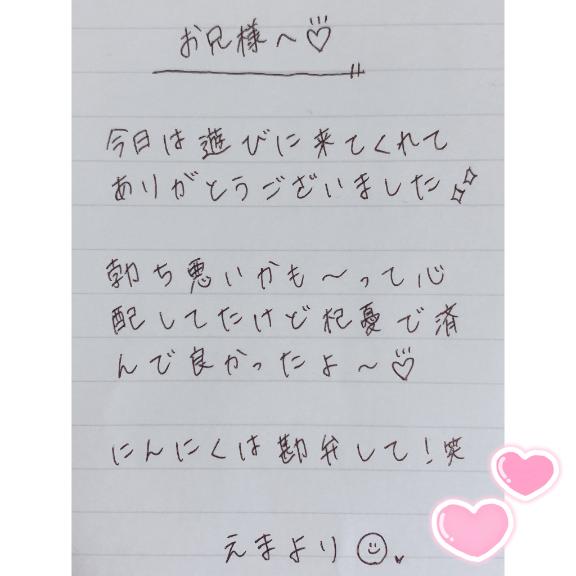 お兄様へ♡
今日は遊びに来てくれて
ありがとうございました
勃ち悪いかも〜って心
配してたけど杞憂で済
んで良かったよ〜♡
にんにくは勘弁して!笑
えまより